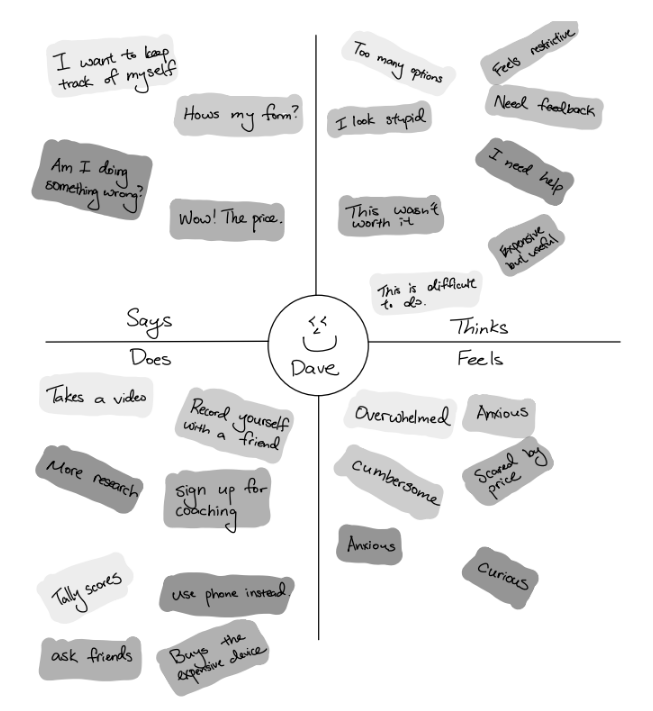 I want to keep
track of myself
Hows my form?
Am I doing
something wrong?
Wow! The price.
Says
Too many options
Feels restrictive
Need feedback
I look stupid
I need help
This wasn't
worth it
Expensive
but useful
This is difficult
to do.
Thinks
Dave
Does
Takes a video
Record yourself
with a friend
More research
sign up for
coaching
Tally scores
use phone instead.
ask friends
Buys the
expensive device
Feels
Overwhelmed
Anxious
cumbersome
Scared by
price
Anxious
Curious